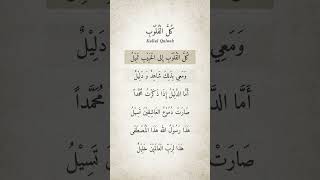 كُلُّ الْقُلُوْبِ
Kullul Quloob
كُلُّ الْقُلُوْبِ إِلَى الْحَبِيْبِ تَمِيْلُ
وَمَعِيْ بِذٰلِكَ شَاهِدٌ وَ دَلِيْلٌ
أَمَّا الدَّلِيْلُ إِذَا ذَكَرْتَ مُحَمَّداً
صَارَتْ دُمُوْعُ الْعَاشِقِيْنَ تَسِيْلُ
هَذَا رَسُوْلُ اللهِ هَذَا الْمُصْطَفَى
هَذَا لِرَبِّ الْعَالَمِيْنَ خَلِيْلُ